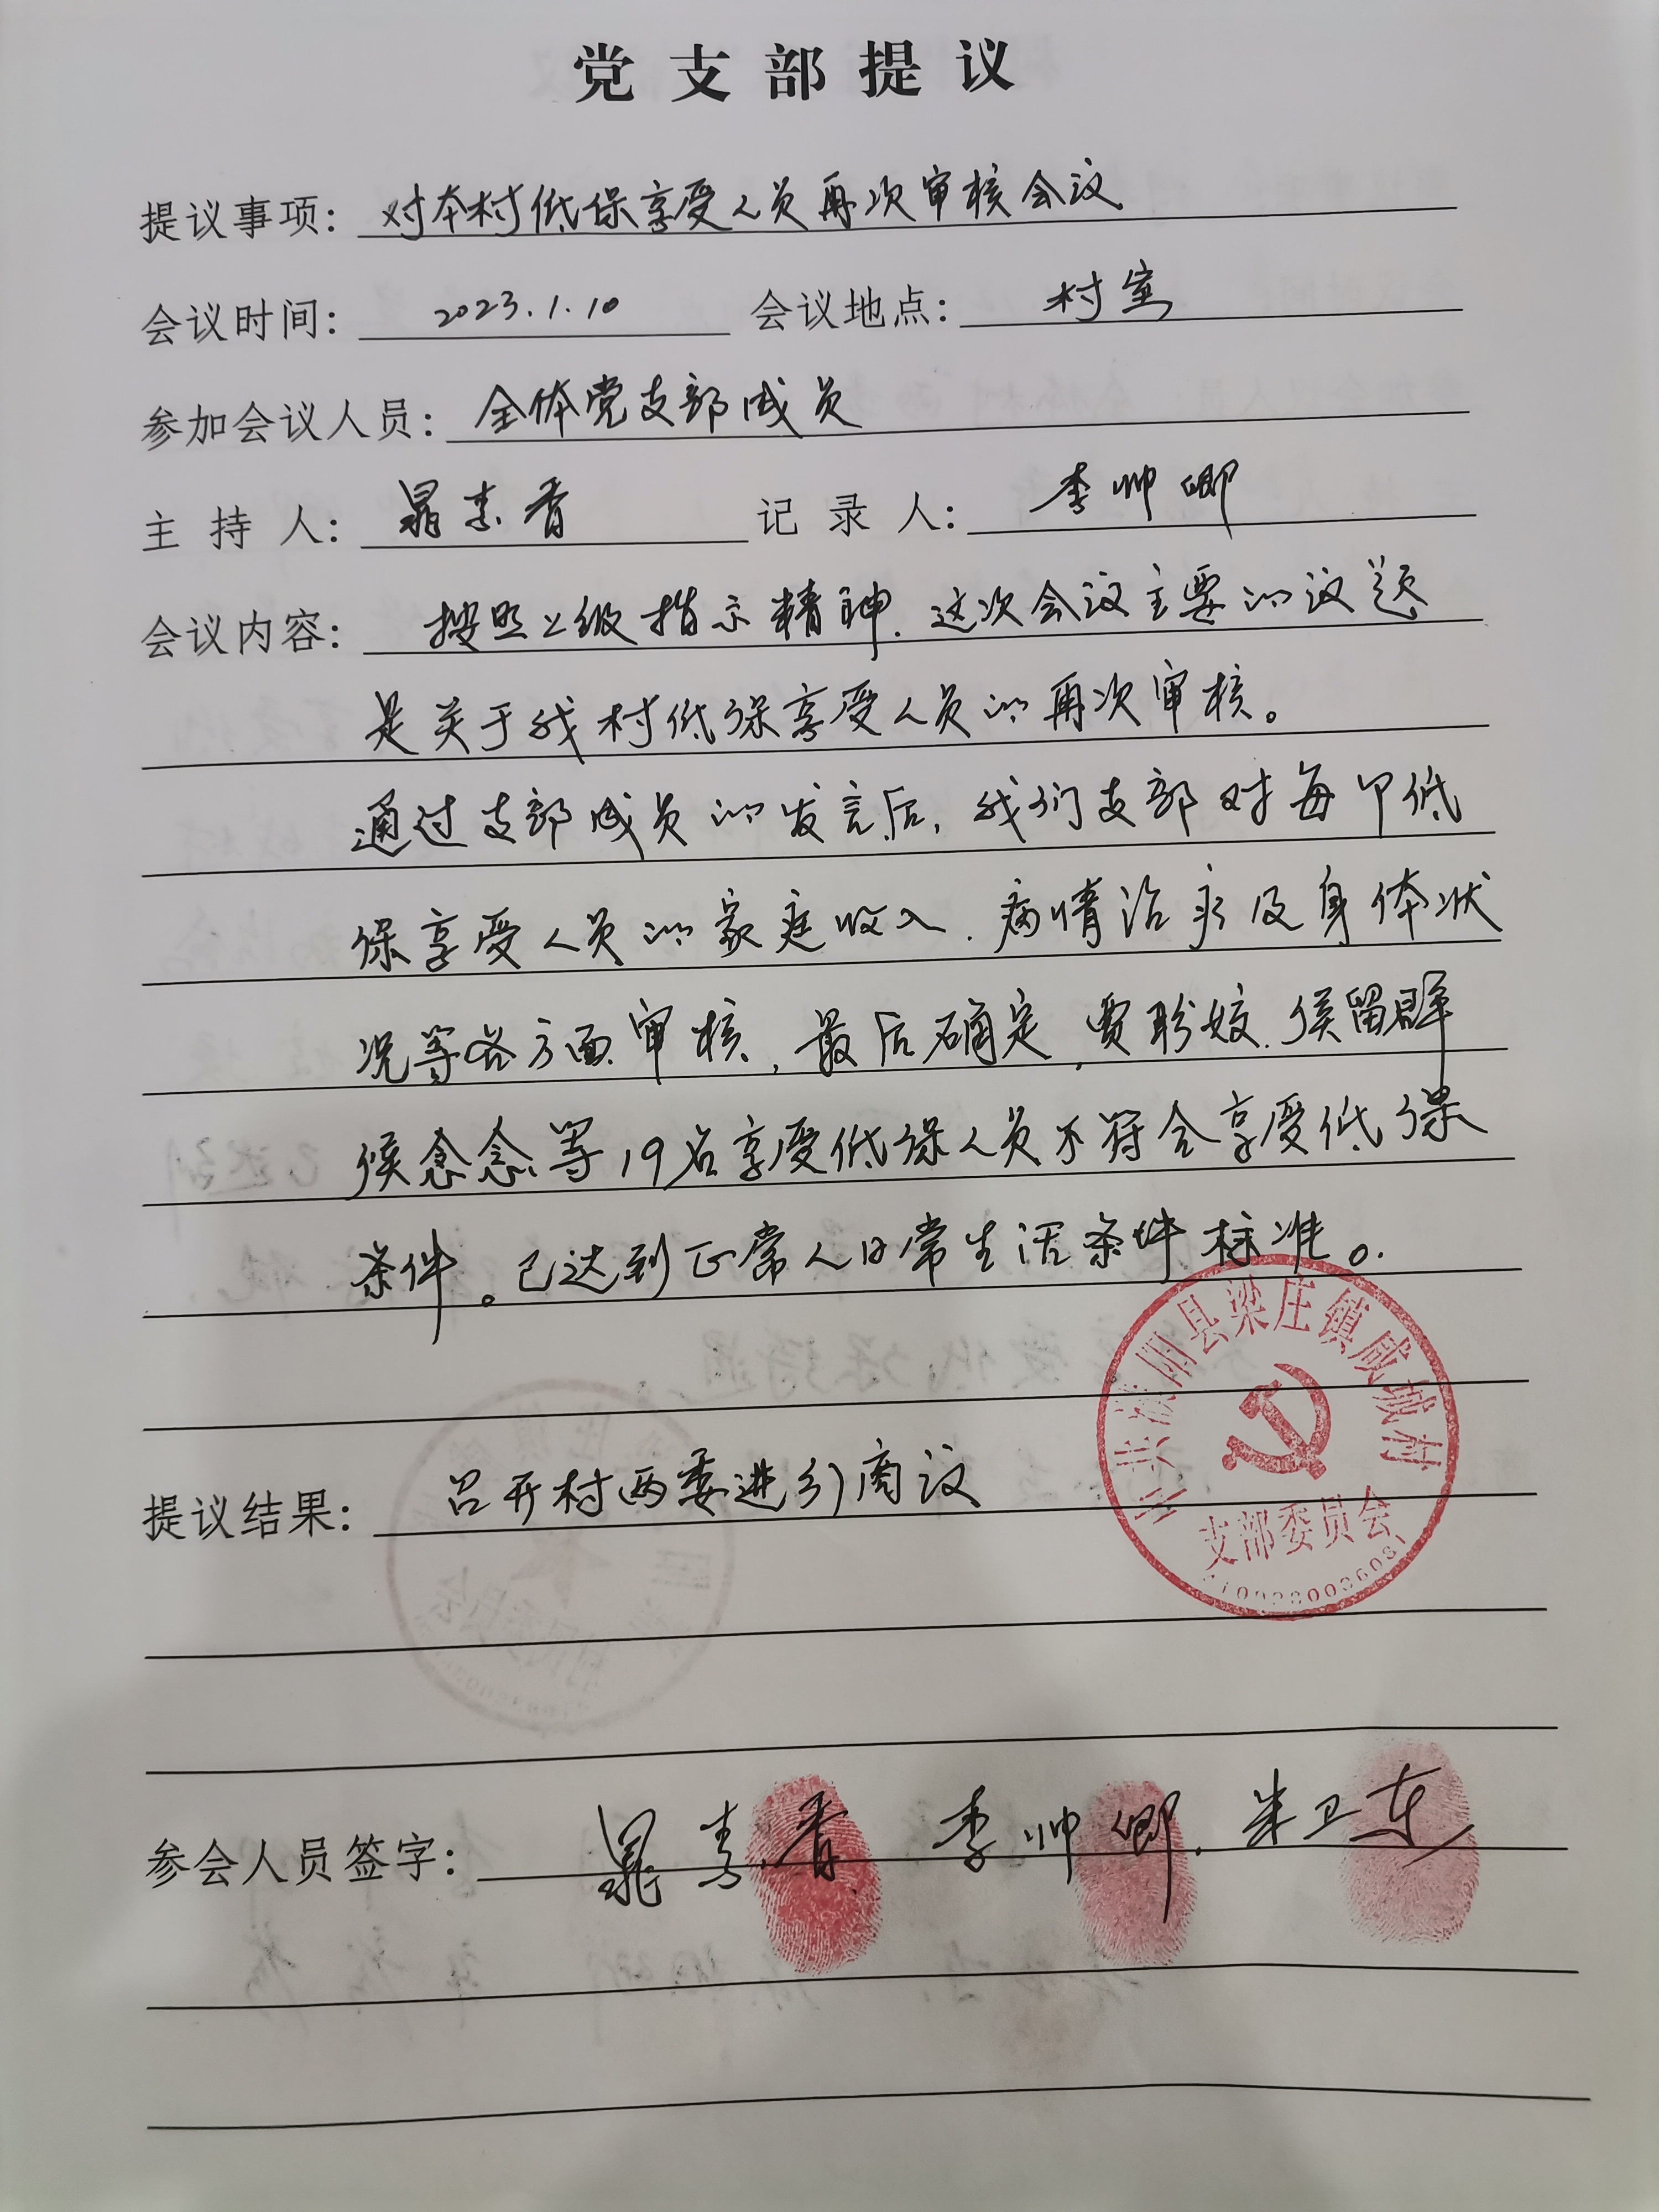 党支部提议
提议事项: 对本村低保享受人员再次审核会议
会议时间: 2023.1.10 会议地点: 村室
参加会议人员: 全体党支部成员
主持人: 晁素香 记录人: 李帅卿
会议内容: 按照上级指示精神.这次会议主要的议题
是关于我村低保享受人员的再次审核。
通过支部成员的发言后,我们支部对每个低
保享受人员的家庭收入.病情治疗及身体状
况等各方面审核,最后确定,贾盼姣.侯留群
侯念念等19名享受低保人员不符合享受低保
条件。已达到正常人日常生活条件标准。.
提议结果: 召开村两委进行商议
中共濮阳县梁庄镇咸城村
支部委员会
参会人员签字: 晁素香 李帅卿.朱卫东